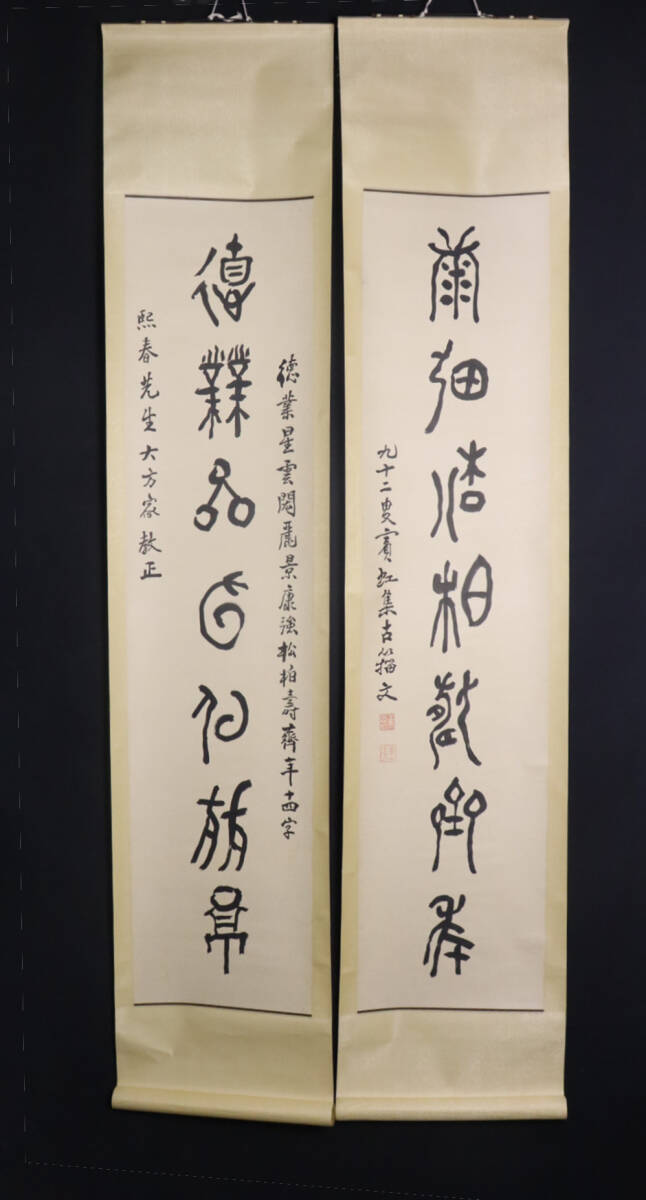 德業星雲閎麗景
德業星雲閎麗景康強松柏壽齊年十四字
熙春先生大方家教正
康強松柏壽齊年
九十二叟賓虹集古籀文